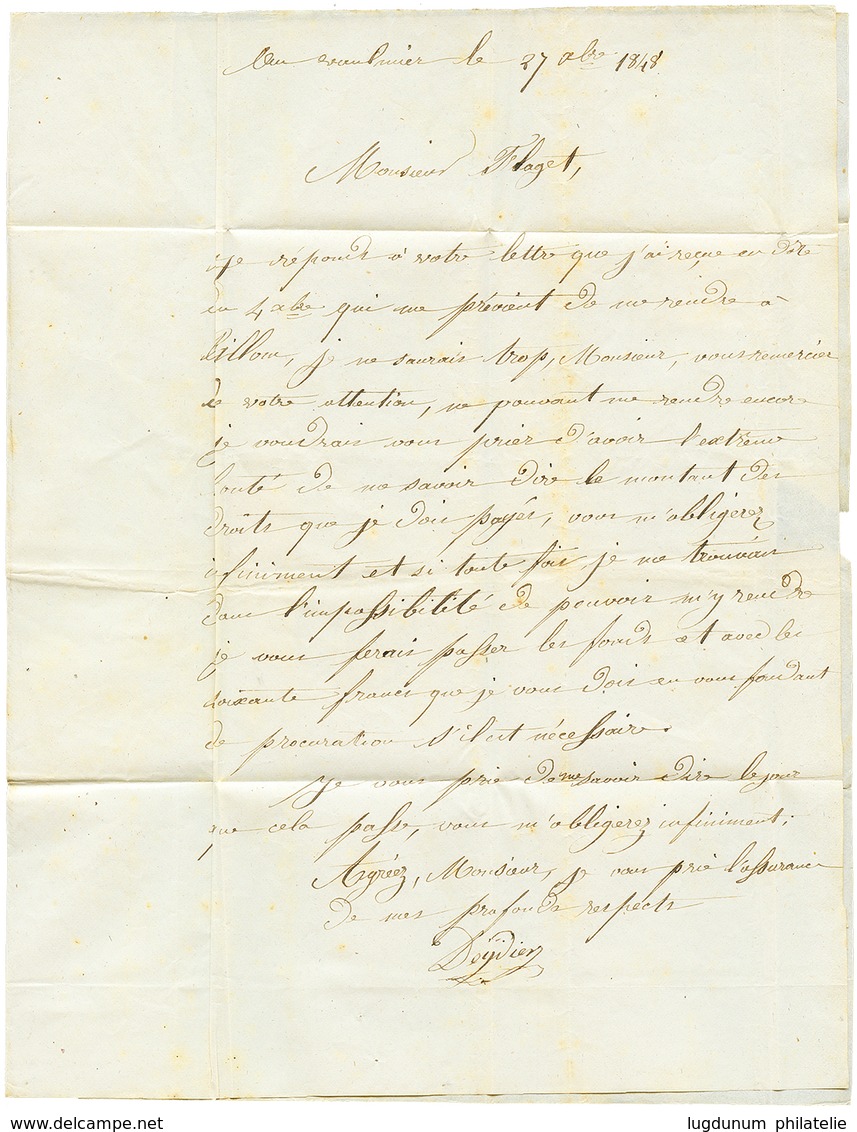 Au vaulmier le 27 xbre 1848
Monsieur Flaget,
Je réponds à votre lettre que j'ai reçue en date
du 4 xbre qui me prévient de me rendre à
Billom, je ne saurais trop, Monsieur, vous remercier
de votre attention, ne pouvant me rendre encore
je voudrais vous prier d'avoir l'extrême
bonté de me savoir dire le montant des
droits que je dois payés, vous m'obligerez
infiniment et si toute fois je me trouvais
dans l'impossibilité de pouvoir m'y rendre
je vous ferais passer les fonds et avec les
soixante francs que je vous dois en vous fondant
de procuration s'il est nécessaire.
Je vous prie de me savoir dire le jour
que cela passe, vous m'obligerez infiniment;
Agréez, Monsieur, je vous prie l'assurance
de mes profonds respects
Doÿdier
lugdunum philatelie